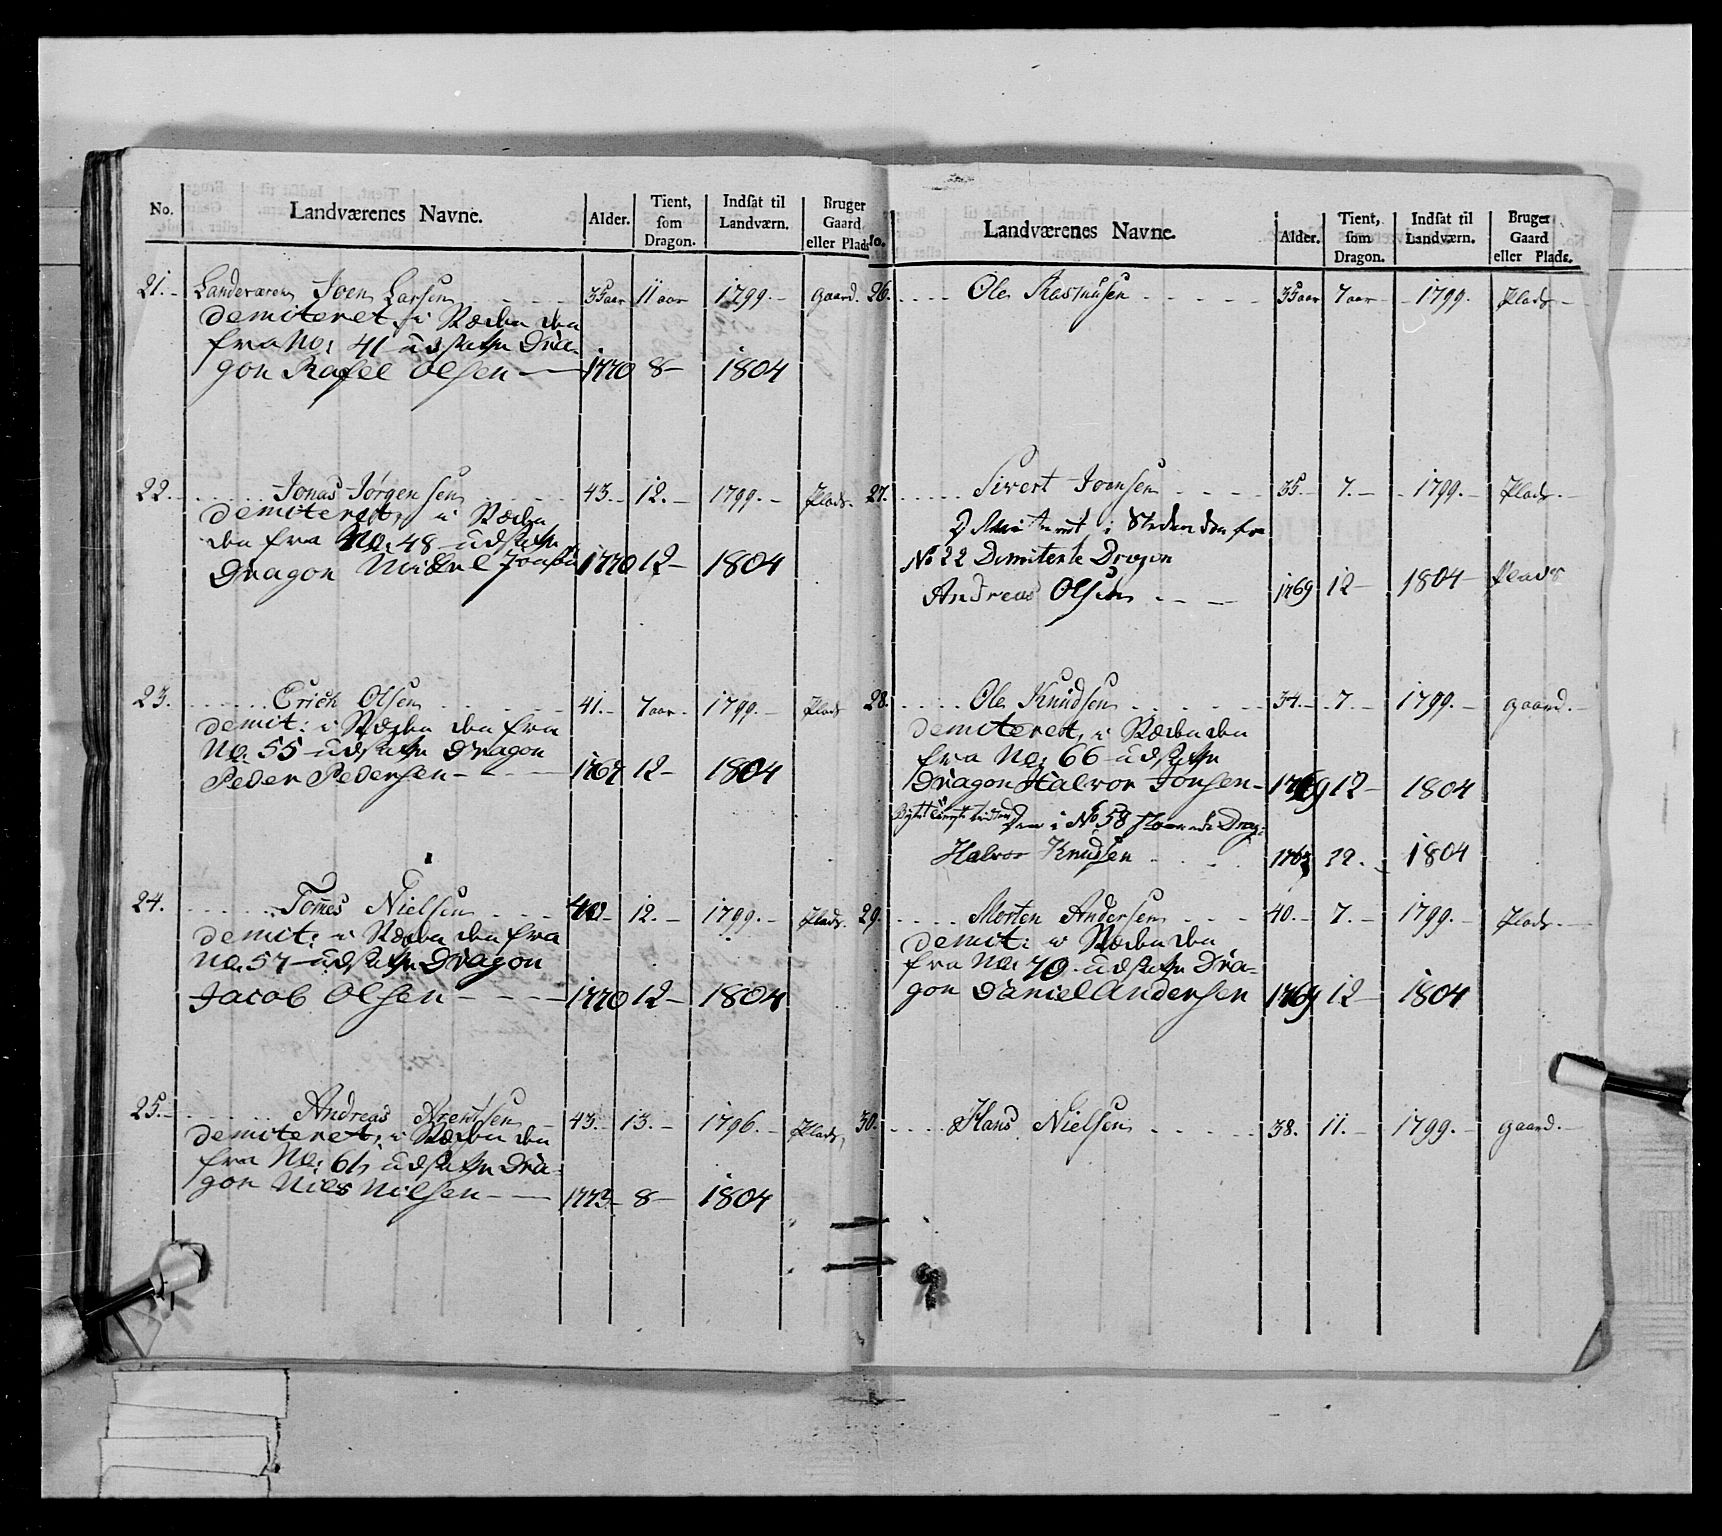 No. Landværenes Navne. Alder. Tient, som Dragon. Indsat til Landværn. Bruger Gaard eller Plads
21. Landværen Joen Larsen 35 aar 11 aar 1799. gaard.
demiteret, i Stæden den
fra No: 41 udsatte Dra-
gon Rafel Olsen 1770 8 1804
22. Jonas Jørgensen 43. 12. 1799. Plads.
demiteret, i Stæden
den fra No. 48 udsatte
Dragon 1770 12 1804
23. Erich Olsen 41. 7 aar. 1799. Plads
demit: i Stæden den fra
No. 55 udsatte Dragon
Peder Pedersen 1767 12 1804
24. Tomes Nielsen 12. 1799. Plads.
demit: i Stæden den fra
No. 57 udsatte Dragon
Jacob Olsen 1770 12 1804
25. Andreas Arentsen 43. 13. 1796. Plads,
demiteret, i Stæden den
fra No: 61 udsatte Dra-
gon Niels Nilsen 1773 8 1804
No. Landværenes Navne. Alder. Tient, som Dragon. Indsat til Landværn. Bruger Gaard eller Plads.
26. Ole Rasmusen 35 aar 7 aar 1799. Plads
27. Sivert Joensen 35. 7. 1799. Plads.
Demiteret, i Steden den fra
No 22 Demiterte Dragon
Andreas Olsen 1769 12 1804 Plads
28. Ole Knudsen 34. 7. 1799. gaard.
demiteret, i Stæden den
fra No: 66 udsatte
Dragon Halvor Jonsen 1769 12 1804
den i No 58 staaende Drag:
Halvor Knudsen 12. 1804
29. Morten Andersen 40. 7. 1799. Plads.
demit: i Stæden den
fra No: 70 udsatte Dra-
gon Daniel Andersen 1769 12 1804
30. Hans Nielsen 38. 11. 1799. gaard.